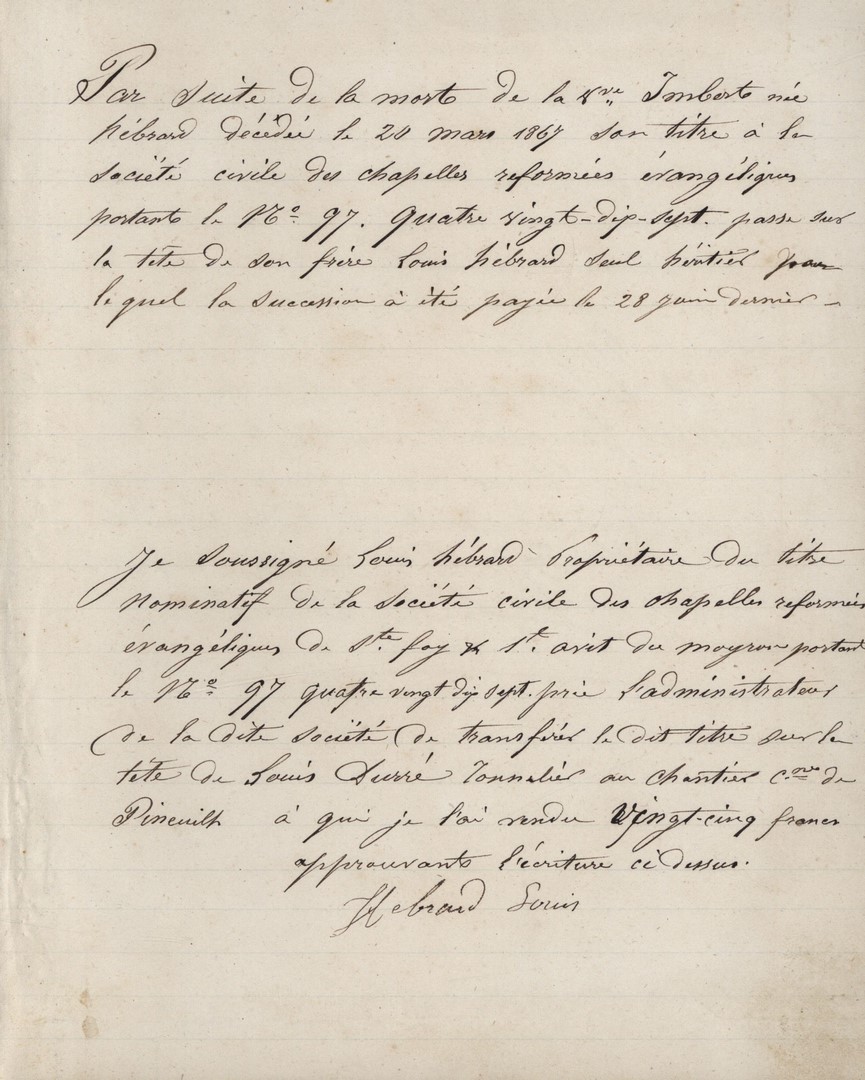 Par suite de la mort de la Vve Imbert née
hébrard décédée le 20 mars 1867 son titre à la
Société civile des chapelles reformées évangéliques
portant le No 97. quatre vingt-dix-sept. passe sur
la tête de son frère Louis hébrard seul héritier pour
lequel la succession à été payée le 28 juin dernier -
Je soussigné Louis hébrard Propriétaire du titre
nominatif de la société civile des chapelles reformées
évangéliques de Ste foy & St. avit du moyron portant
le No 97 quatre vingt dix sept. prie l'administrateur
de la dite société de transférer le dit titre sur la
tête de Louis Durré Tonnelier au chantier Cne de
Pineuilh à qui je l'ai vendu vingt-cinq francs
approuvant l'écriture ci dessus.
Hebrard Louis